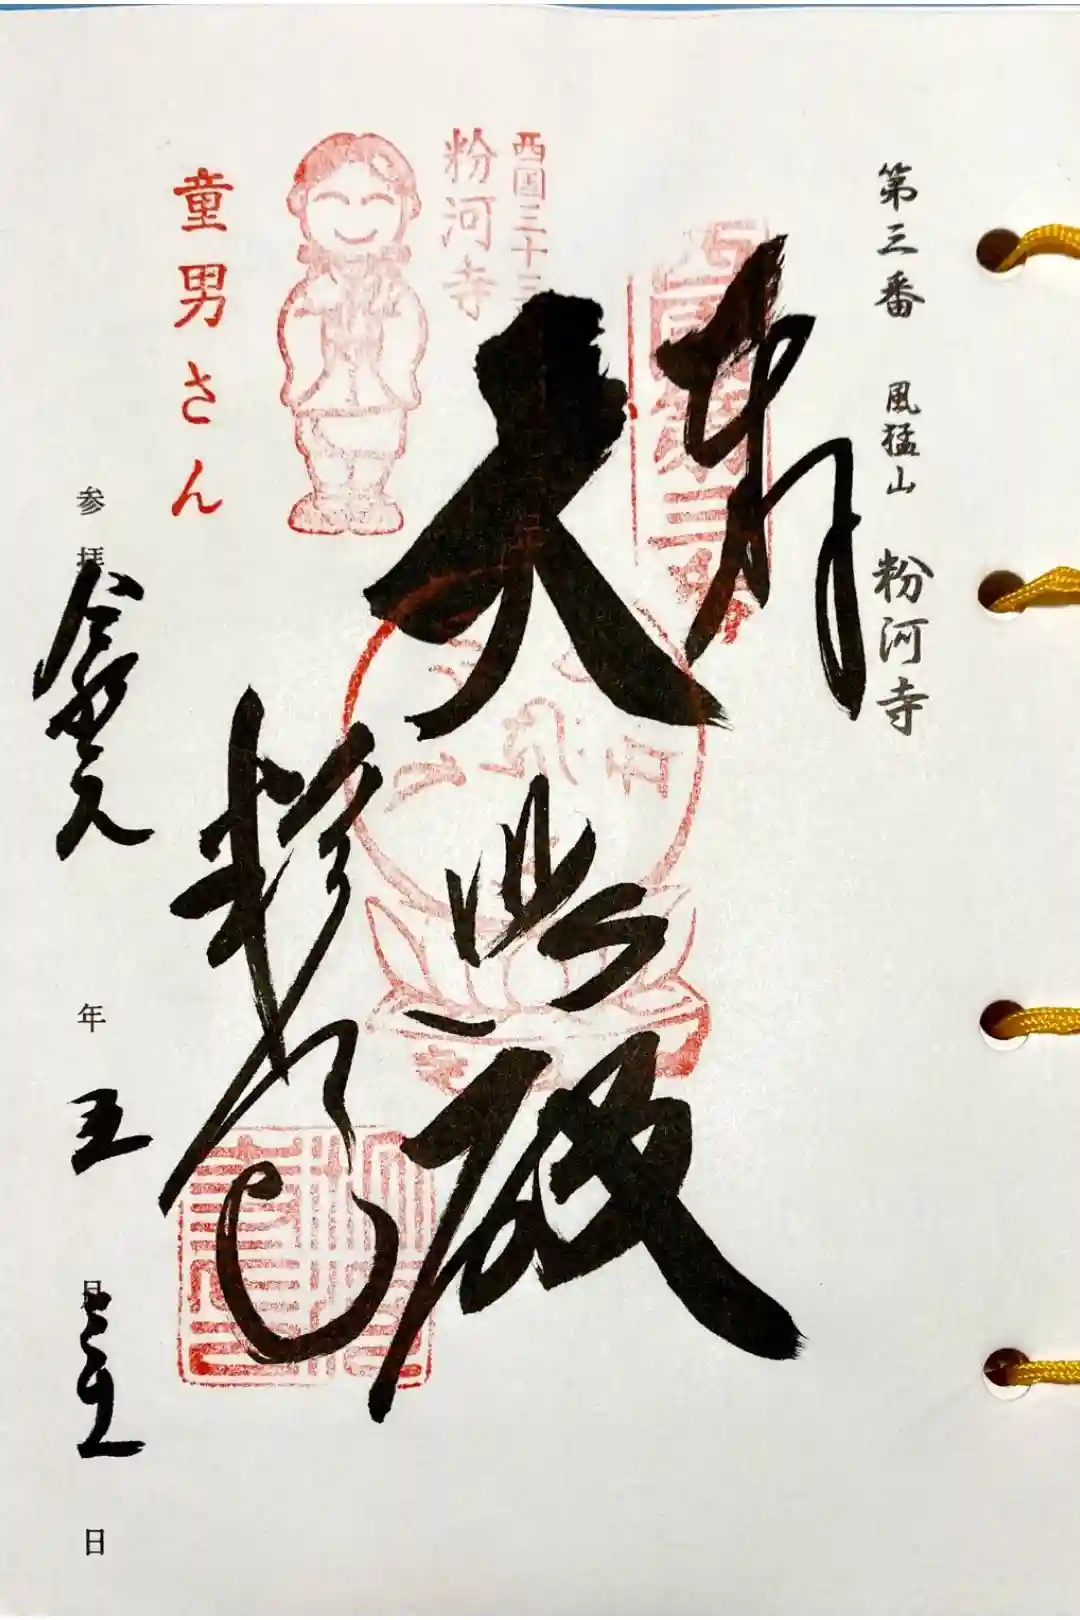 第三番 風猛山 粉河寺
奉拝
西国第三番
大悲殿
西国三十三
粉河寺
粉河寺
童男さん
参拝 令和元 年 五 月 日